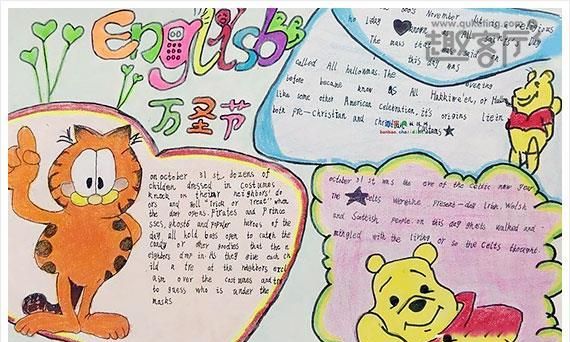 English
万圣节
www.quketing.com
趣客厅
1day November
known
The mass that was said on
this day was
called All hallowmas. The evening
before became know as All Hakkiwe'en, or
like some other American Celebration, it's origins lie in
both pre-Christian and
on october 31 st dozens of
children dressed in costumes
knock on their neighbors' do
ors and yell "Trick or Treat" when
the door opens. Pirates and Prince
sses, ghosts and popular heroes of the
day all hold bags open to catch the
candy or other goodies that the n
eighbors drop in. As they give each ch
ild a tre at the neighbors excl
aim over the costumes and try
to guess who is under the
masks
october 31 st was the eve of the Celtic new year
The Celts were the present-day Irish. Welsh
and Scottish people on this day ghosts walked and
mingled with the living or so the Celts thought.